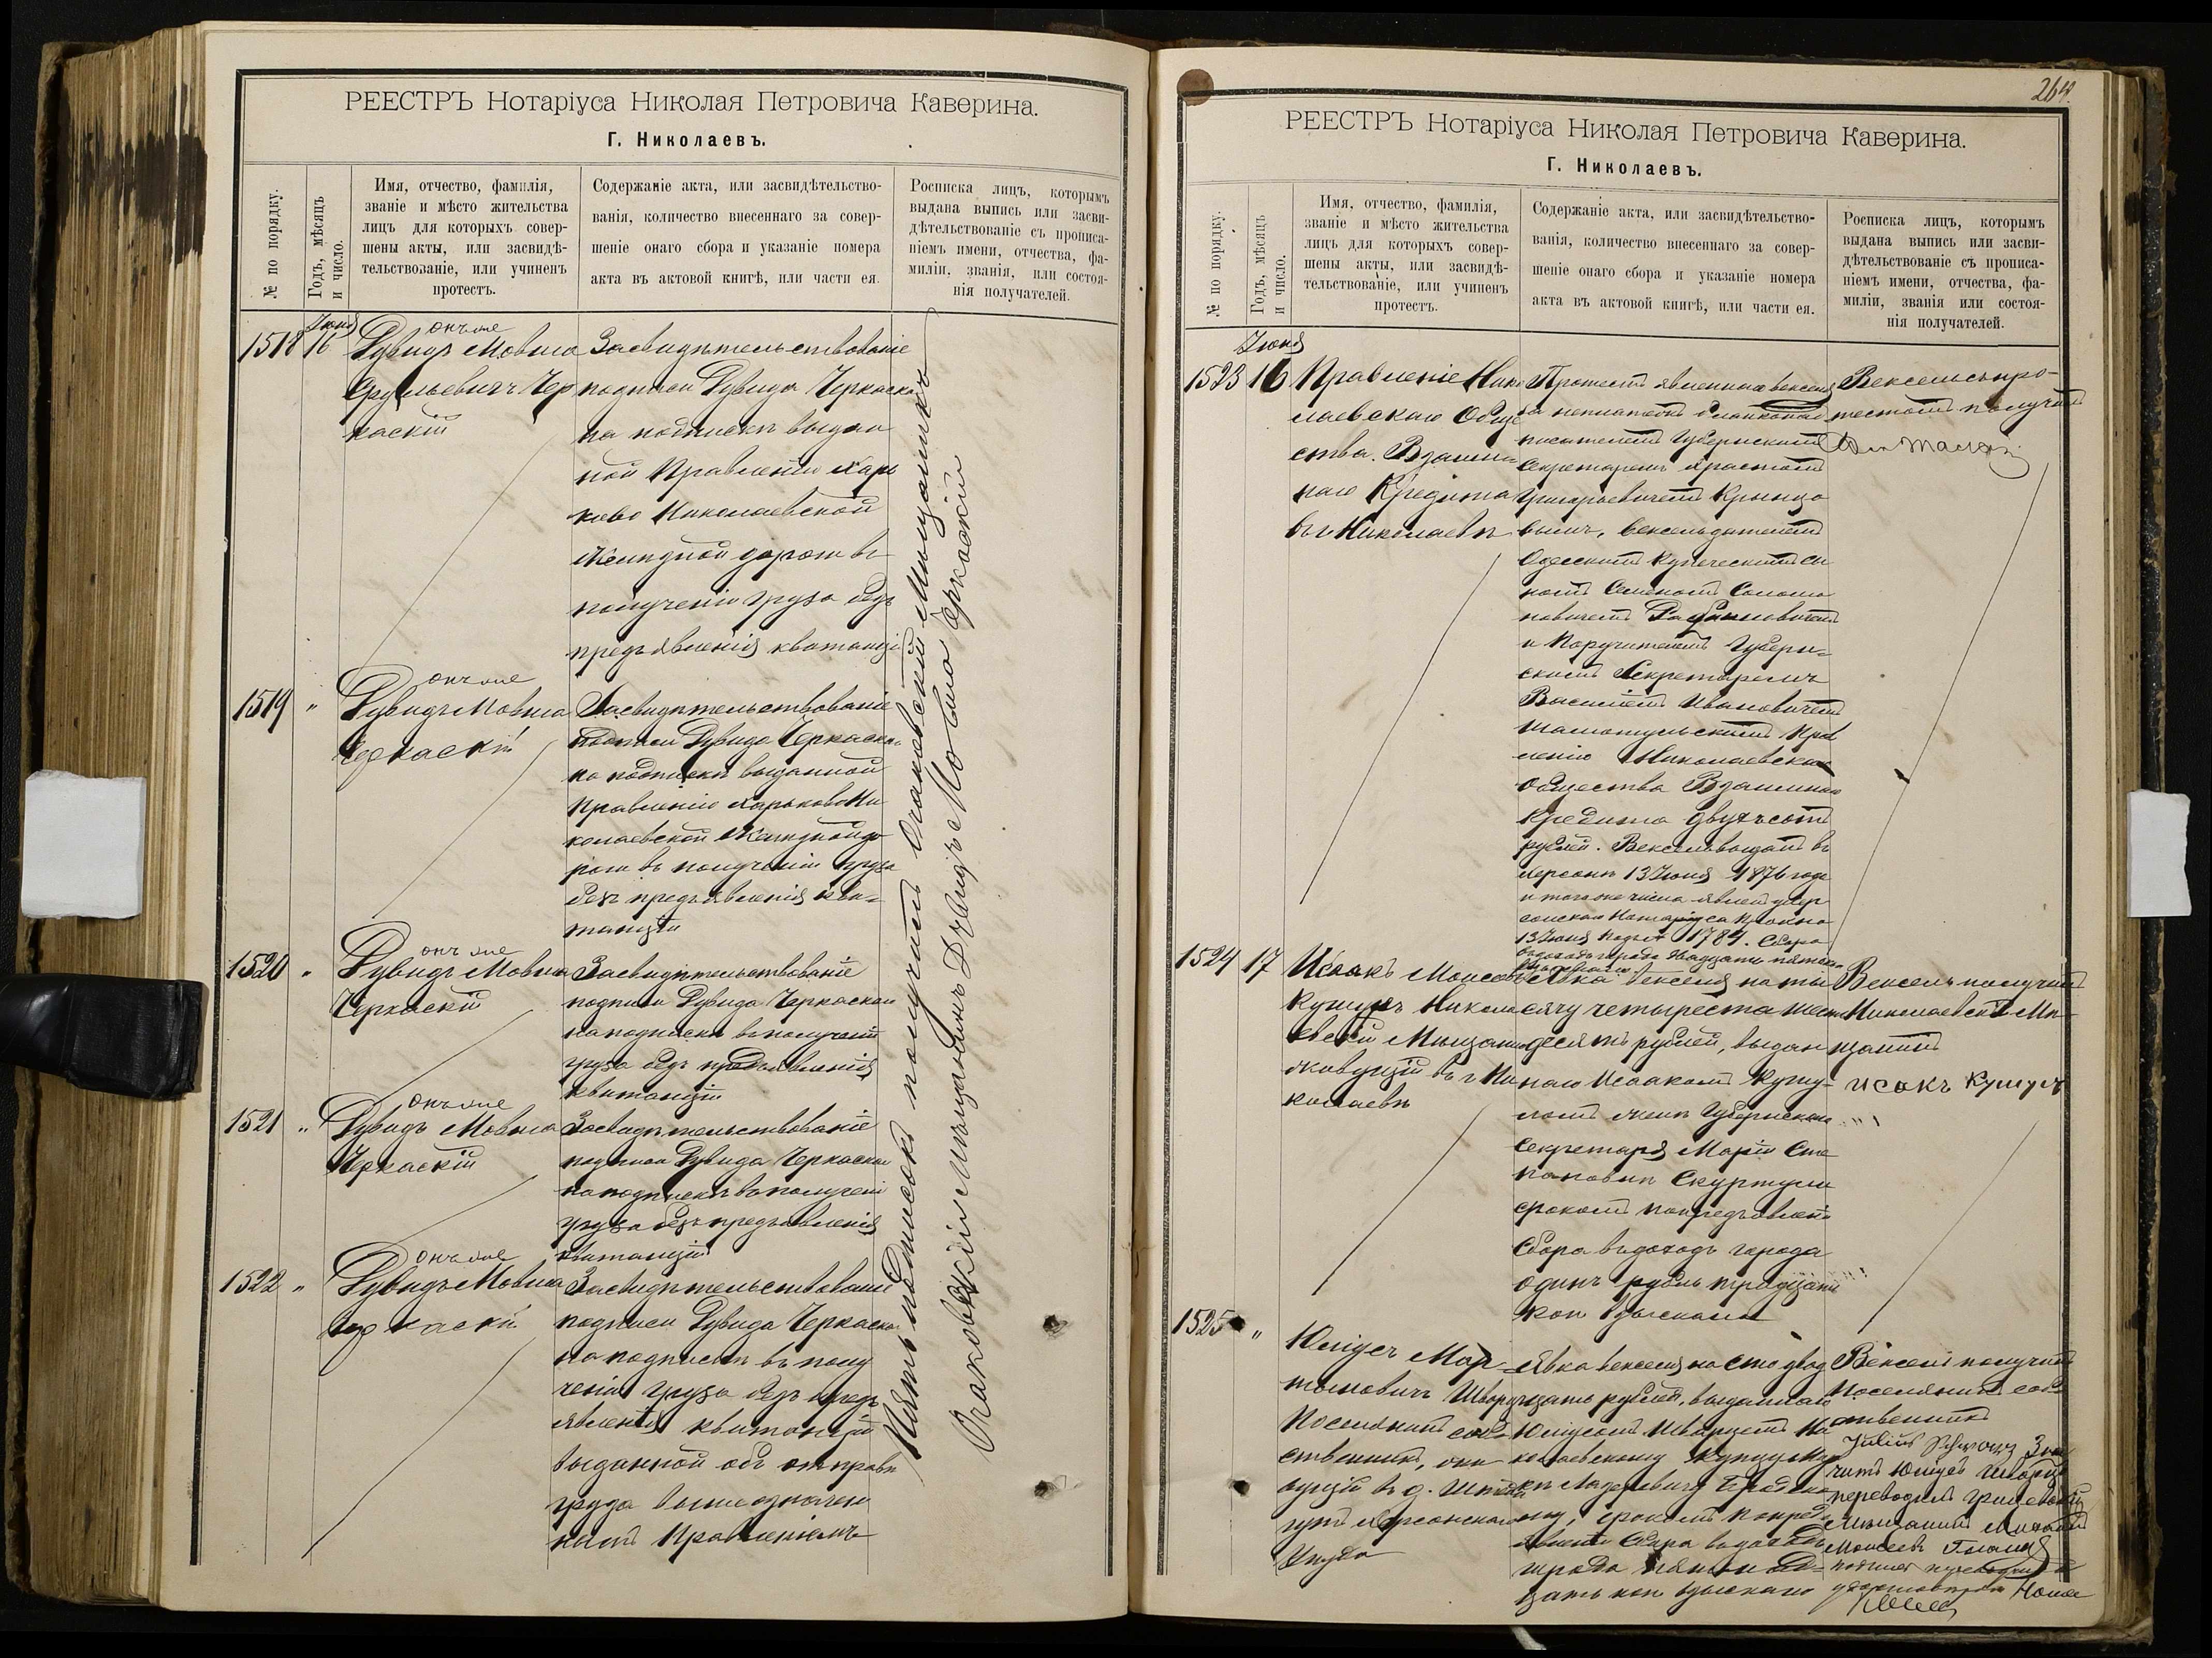 РЕЕСТРЪ Нотаріуса Николая Петровича Каверина.
Г. Николаевъ.
№ по порядку.
Годъ, мѣсяцъ
и число.
Имя, отчество, фамилія,
званіе и мѣсто жительства
лицъ для которыхъ совер-
шены акты, или засвидѣ-
тельствованіе, или учиненъ
протестъ.
Содержаніе акта, или засвидѣтельство-
ванія, количество внесеннаго за совер-
шеніе онаго сбора и указаніе номера
акта въ актовой книгѣ, или части ея.
Росписка лицъ, которымъ
выдана выпись или засви-
дѣтельствованіе съ прописа-
ніемъ имени, отчества, фа-
миліи, званія, или состоя-
нія получателей.
1518
Іюня
16
онъ же
Дувидъ Мовша
Чер
каскій
Засвидѣтельствованіе
подписи Дувида Черкаска
на подпискѣ выдан
ной Правленію Харь
ково Николаевской
желѣзной дороги въ
полученіи груза безъ
предъявленія квитанціи
1519
"
онъ же
Дувидъ Мовша
Черкаскій
Засвидѣтельствованіе
подписи Дувида Черкаска
на подпискѣ выданной
Правленію Харьково Ни
колаевской Желѣзной до
роги въ полученіи груза
безъ предъявленія кви-
танціи
1520
"
онъ же
Дувидъ Мовша
Черкаскій
Засвидѣтельствованіе
подписи Дувида Черкаскаго
на подпискѣ въ полученіи
груза безъ предъявленія
квитанціи
1521
"
онъ же
Дувидъ Мовша
Черкаскій
Засвидѣтельствованіе
подписи Дувида Черкаскаго
на подпискѣ въ полученіи
груза безъ предъявленія
квитанціи
1522
"
онъ же
Дувидъ Мовша
Черкаскій
Засвидѣтельствованіе
подписи Дувида Черкаска
на подпискѣ въ полу
ченіи груза безъ предъ
явленія квитанціи
выданной объ отправкѣ
груза вышеозначен
нымъ Правленіемъ
Пять подписокъ получилъ Очаковскій Мѣщанинъ
Очаковскій мѣщанинъ Дувидъ Мовша Черкаскій
264.
РЕЕСТРЪ Нотаріуса Николая Петровича Каверина.
Г. Николаевъ.
№ по порядку.
Годъ, мѣсяцъ
и число.
Имя, отчество, фамилія,
званіе и мѣсто жительства
лицъ для которыхъ совер-
шены акты, или засвидѣ-
тельствованіе, или учиненъ
протестъ.
Содержаніе акта, или засвидѣтельство-
ванія, количество внесеннаго за совер-
шеніе онаго сбора и указаніе номера
акта въ актовой книгѣ, или части ея.
Росписка лицъ, которымъ
выдана выпись или засви-
дѣтельствованіе съ прописа-
ніемъ имени, отчества, фа-
миліи, званія или состоя-
нія получателей.
1523
Іюня
16
Правленіе Нико
лаевскаго Обще
ства Взаим-
наго Кредита
въ г Николаевѣ
Протестъ явленнаго векселя
за неплатежъ бланкона
писателемъ Губернскимъ
Секретаремъ
Григорьевичемъ
вымъ, векселедателемъ
Одесскимъ Купеческимъ сы
номъ Семеномъ Соломо
новичемъ
и Поручителемъ Губерн-
скимъ Секретаремъ
Василіемъ Ивановичемъ
Прав
ленію Николаевскаго
Общества Взаимнаго
Кредита двухъ сотъ
рублей. Вексель выданъ въ
Херсонѣ 13 Іюня 1876 года
и того же числа явленъ у Хер
сонскаго Нотаріуса
13 Іюня подъ № 1784. Сбора
въ доходъ города двадцать пять коп.
взыскано
Вексель съ про-
тестомъ получилъ
1524
17
Исаакъ Моисеевъ
Кушуръ Никола
евскій Мѣщанинъ
живущій въ г Ни
колаевѣ
Явка векселя на ты
сячу четыреста шесть
десятъ рублей, выдан
наго Исаакомъ Кушу-
ромъ женѣ Губернскаго
Секретаря Маріи Сте
пановнѣ Скуртули
срокомъ по предъявленіи
Сбора въ доходъ города
одинъ рубль тридцать
коп взыскано
Вексель получилъ
Николаевскій Мѣ-
щанинъ
исакъ Кушуръ
1525
"
Юліусъ Мар-
тыновичъ Шварцъ
Поселянинъ соб-
ственникъ, жи-
вущій въ д.
Херсонскаго
Уѣзда
Явка векселя на сто двад
цать рублей, выданнаго
Юліусомъ Шварцемъ Ни
колаевскому Купцу
Лазаревичу
срокомъ по предъ
явленіи Сбора въ доходъ
города
цать коп взыскано
Вексель получилъ
Поселянинъ соб
ственникъ
Julius Schwarz Зна
читъ Юліусъ Шварцъ
переводилъ
Мѣщанинъ
Моисеевъ